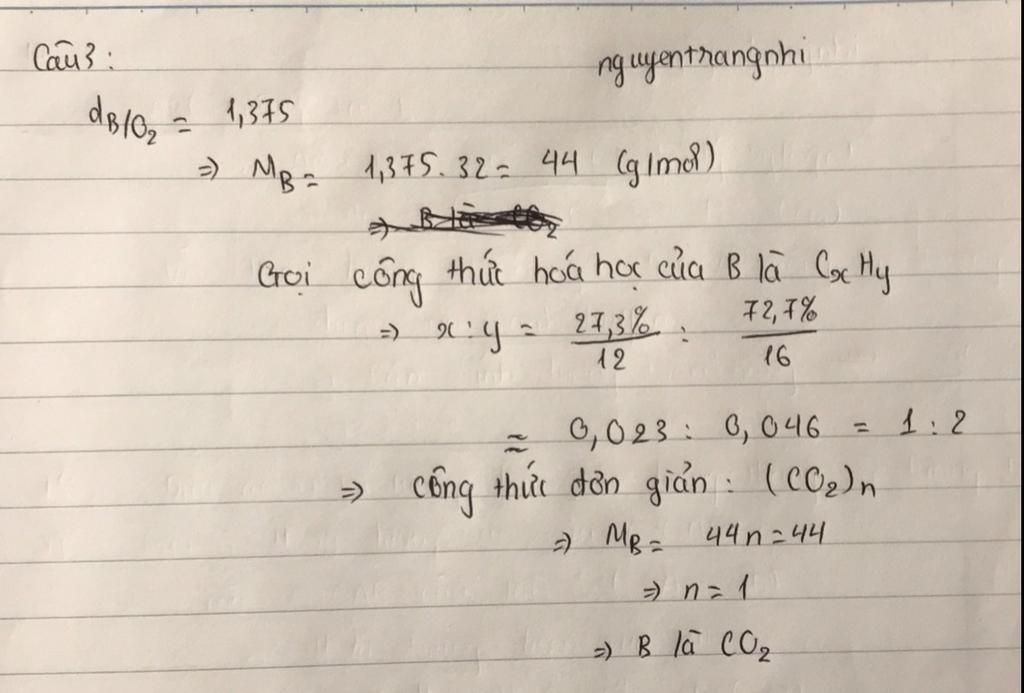 Câu 3: nguyentrangnhi
d_B/O₂ = 1,375
=> M_B = 1,375.32 = 44 (g/mol)
=> B là CO₂
Gọi công thức hoá học của B là CxHy
=> x:y = 27,3%/12 : 72,7%/16
≈ 0,023 : 0,046 = 1:2
=> công thức đơn giản: (CO₂)n
=> M_B = 44n = 44
=> n = 1
=> B là CO₂